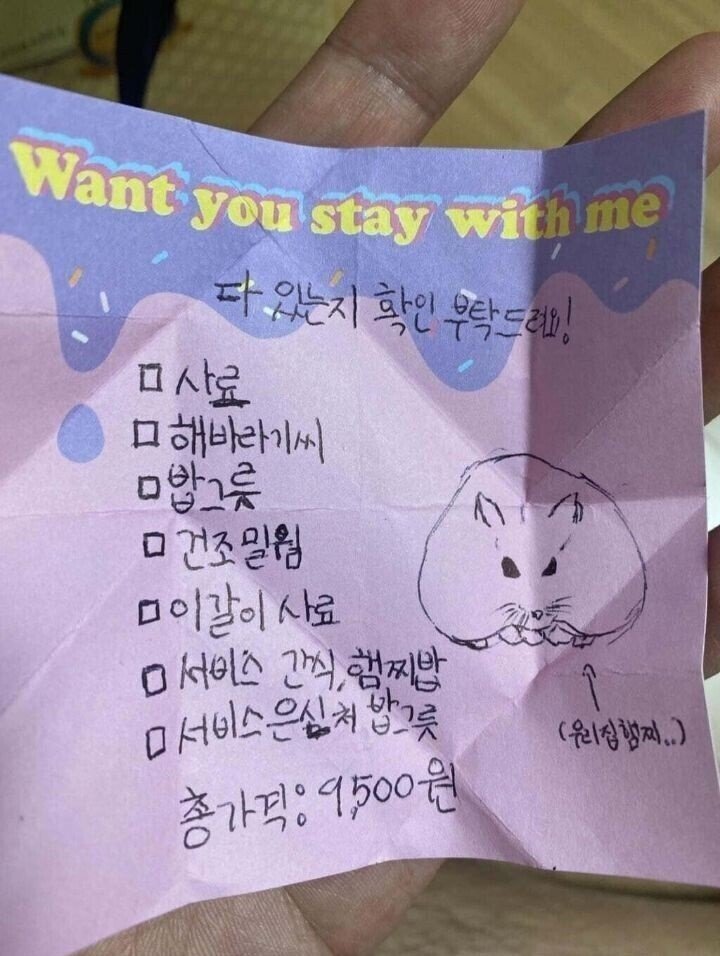 Want you stay with me
다 있는지 확인 부탁드려요!
사료
해바라기씨
밥그릇
건조밀웜
이갈이 사료
서비스 간식, 햄찌밥
서비스 은신처 밥그릇
(우리집햄찌..)
총가격: 9,500원